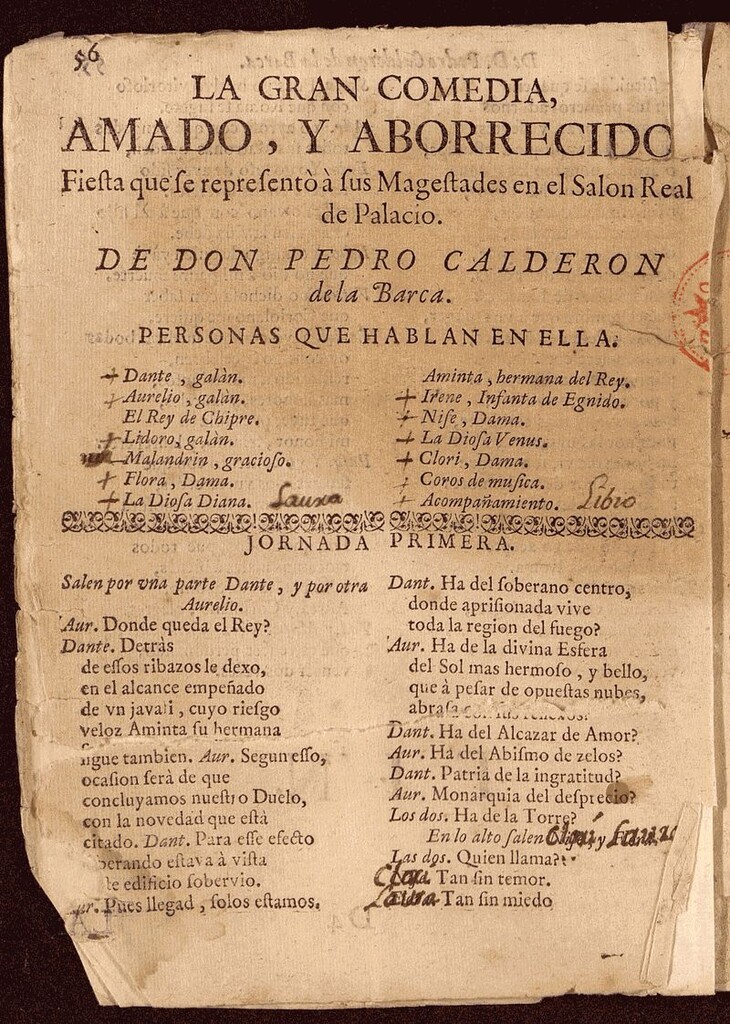 56
LA GRAN COMEDIA,
AMADO, Y ABORRECIDO
Fiesta que se representò à sus Magestades en el Salon Real
de Palacio.
DE DON PEDRO CALDERON
de la Barca.
PERSONAS QUE HABLAN EN ELLA.
Dante, galàn.
Aurelio, galàn.
El Rey de Chipre.
Lidoro, galàn.
Malandrin, gracioso.
Flora, Dama.
La Diosa Diana. Laura
Aminta, hermana del Rey.
Irene, Infanta de Egnido.
Nise, Dama.
La Diosa Venus.
Clori, Dama.
Coros de musica.
Acompañamiento. Libro
JORNADA PRIMERA.
Salen por vna parte Dante, y por otra
Aurelio.
Aur. Donde queda el Rey?
Dante. Detràs
de essos ribazos le dexo,
en el alcance empeñado
de vn javali, cuyo riesgo
veloz Aminta su hermana
sigue tambien. Aur. Segun esso,
ocasion serà de que
concluyamos nuestro Duelo,
con la novedad que està
citado. Dant. Para esse efecto
estava à vista
edificio sobervio.
Pues llegad, solos estamos.
Dant. Ha del soberano centro,
donde aprisionada vive
toda la region del fuego?
Aur. Ha de la divina Esfera
del Sol mas hermoso, y bello,
que à pesar de opuestas nubes,
abrasa con sus reflexos.
Dant. Ha del Alcazar de Amor?
Aur. Ha del Abismo de zelos?
Dant. Patria de la ingratitud?
Aur. Monarquia del desprecio?
Los dos. Ha de la Torre?
En lo alto salen Clori y Laura
Las dos. Quien llama?
Clori Tan sin temor.
Laura Tan sin miedo